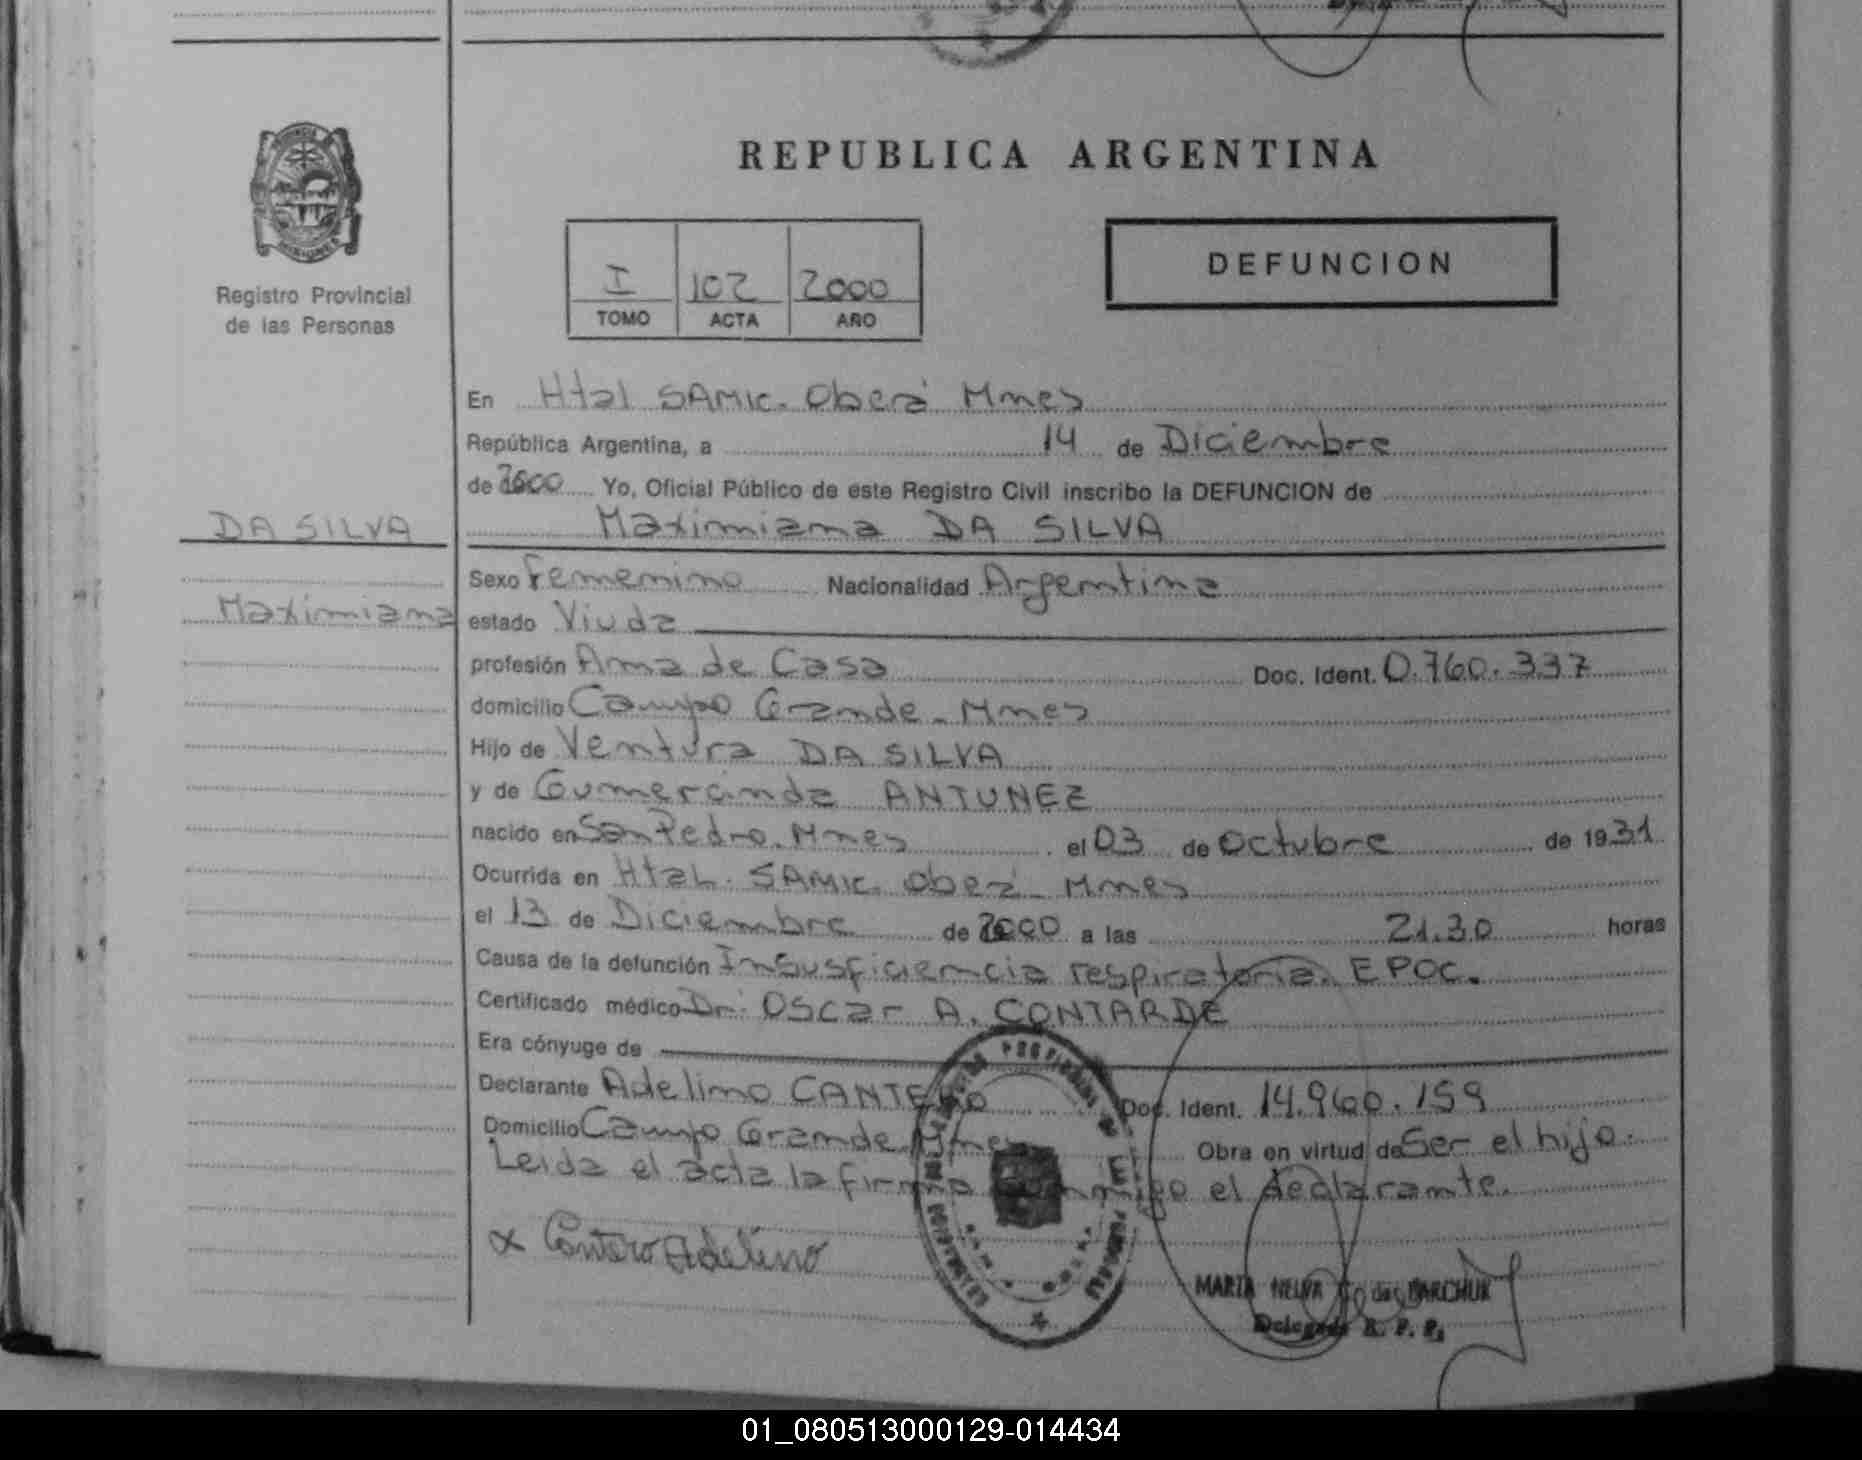 REPUBLICA ARGENTINA
Registro Provincial
de las Personas
I 102 2000
TOMO ACTA AÑO
DEFUNCION
En Htal SAMIC. Oberá Mnes
República Argentina, a 14 de Diciembre
de 2000 Yo, Oficial Público de este Registro Civil inscribo la DEFUNCION de
DA SILVA
Maximiana DA SILVA
Maximiana
Sexo Femenino Nacionalidad Argentina
estado Viuda
profesión Ama de Casa Doc. Ident. 0.760.337
domicilio Campo Grande - Mnes
Hijo de Ventura DA SILVA
y de Gumercinda ANTUNEZ
nacido en San Pedro. Mnes el 03 de Octubre de 1931
Ocurrida en Htal. SAMIC. Oberá - Mnes
el 13 de Diciembre de 2000 a las 21.30 horas
Causa de la defunción Insusficiencia respiratoria. EPOC.
Certificado médico Dr: Oscar A. CONTARDE
Era cónyuge de
Declarante Adelino CANTERO Doc. Ident. 14.960.159
Domicilio Campo Grande. Mnes Obra en virtud de Ser el hijo.
Leida el acta la firma conmigo el declarante.
x Cantero Adelino
MARIA NELVA G. de BARCHUK
Delegada R. P. P.
01_080513000129-014434